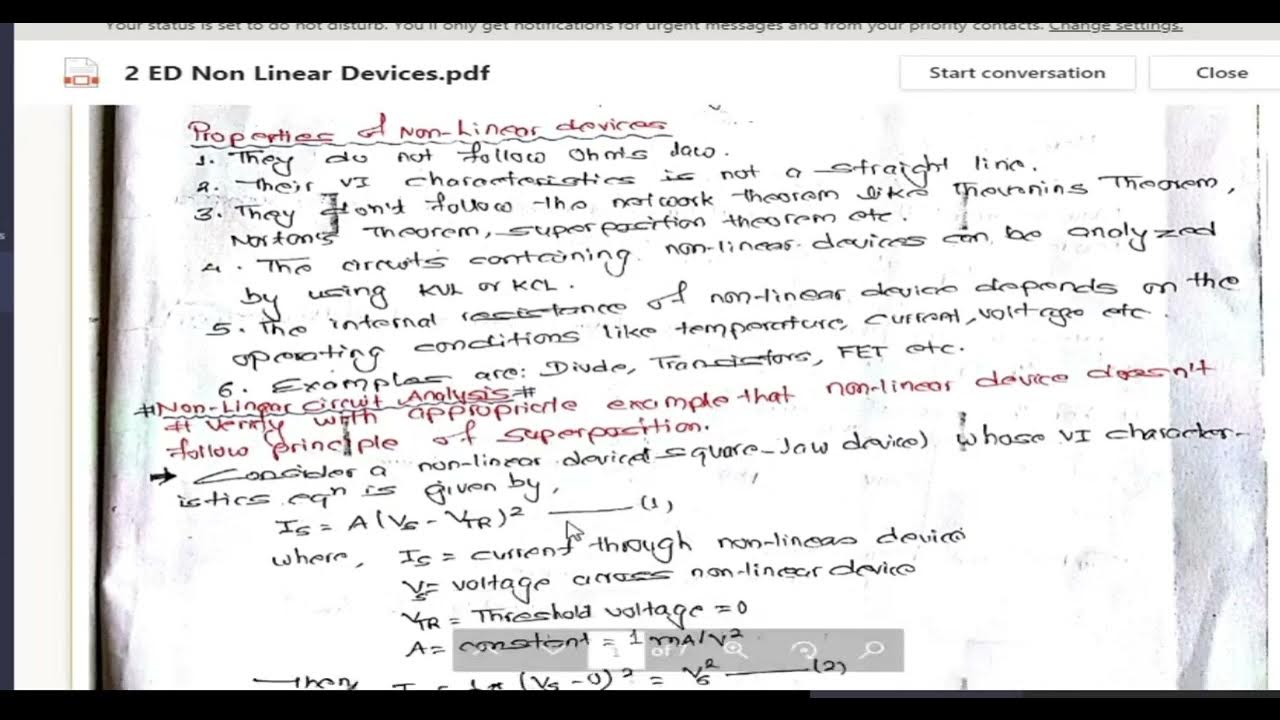 Your status is set to do not disturb. You'll only get notifications for urgent messages and from your priority contacts. Change settings.
2 ED Non Linear Devices.pdf
Start conversation
Close
Properties of Non-Linear devices
1. They do not follow Ohms law.
2. Their VI characteristics is not a straight line.
3. They don't follow the network theorem like Thevenins Theorem,
Norton's Theorem, superposition theorem etc.
4. The circuits containing non-linear devices can be analyzed
by using KVL or KCL.
5. The internal resistance of non-linear device depends on the
operating conditions like temperature, current, voltage etc.
6. Examples are: Diode, Transistors, FET etc.
#Non-Linear Circuit Analysis#
# Verify with appropriate example that non-linear device doesn't
follow principle of superposition.
→ Consider a non-linear device (square-law device) whose VI character-
istics eqn is given by,
Is = A(Vs - VTR)² —— (1)
where, Is = current through non-linear device
Vs = voltage across non-linear device
VTR = Threshold voltage = 0
A = constant = 1 mA/V²
1 of 7
Then (Vs - 0)² = Vs² —— (2)